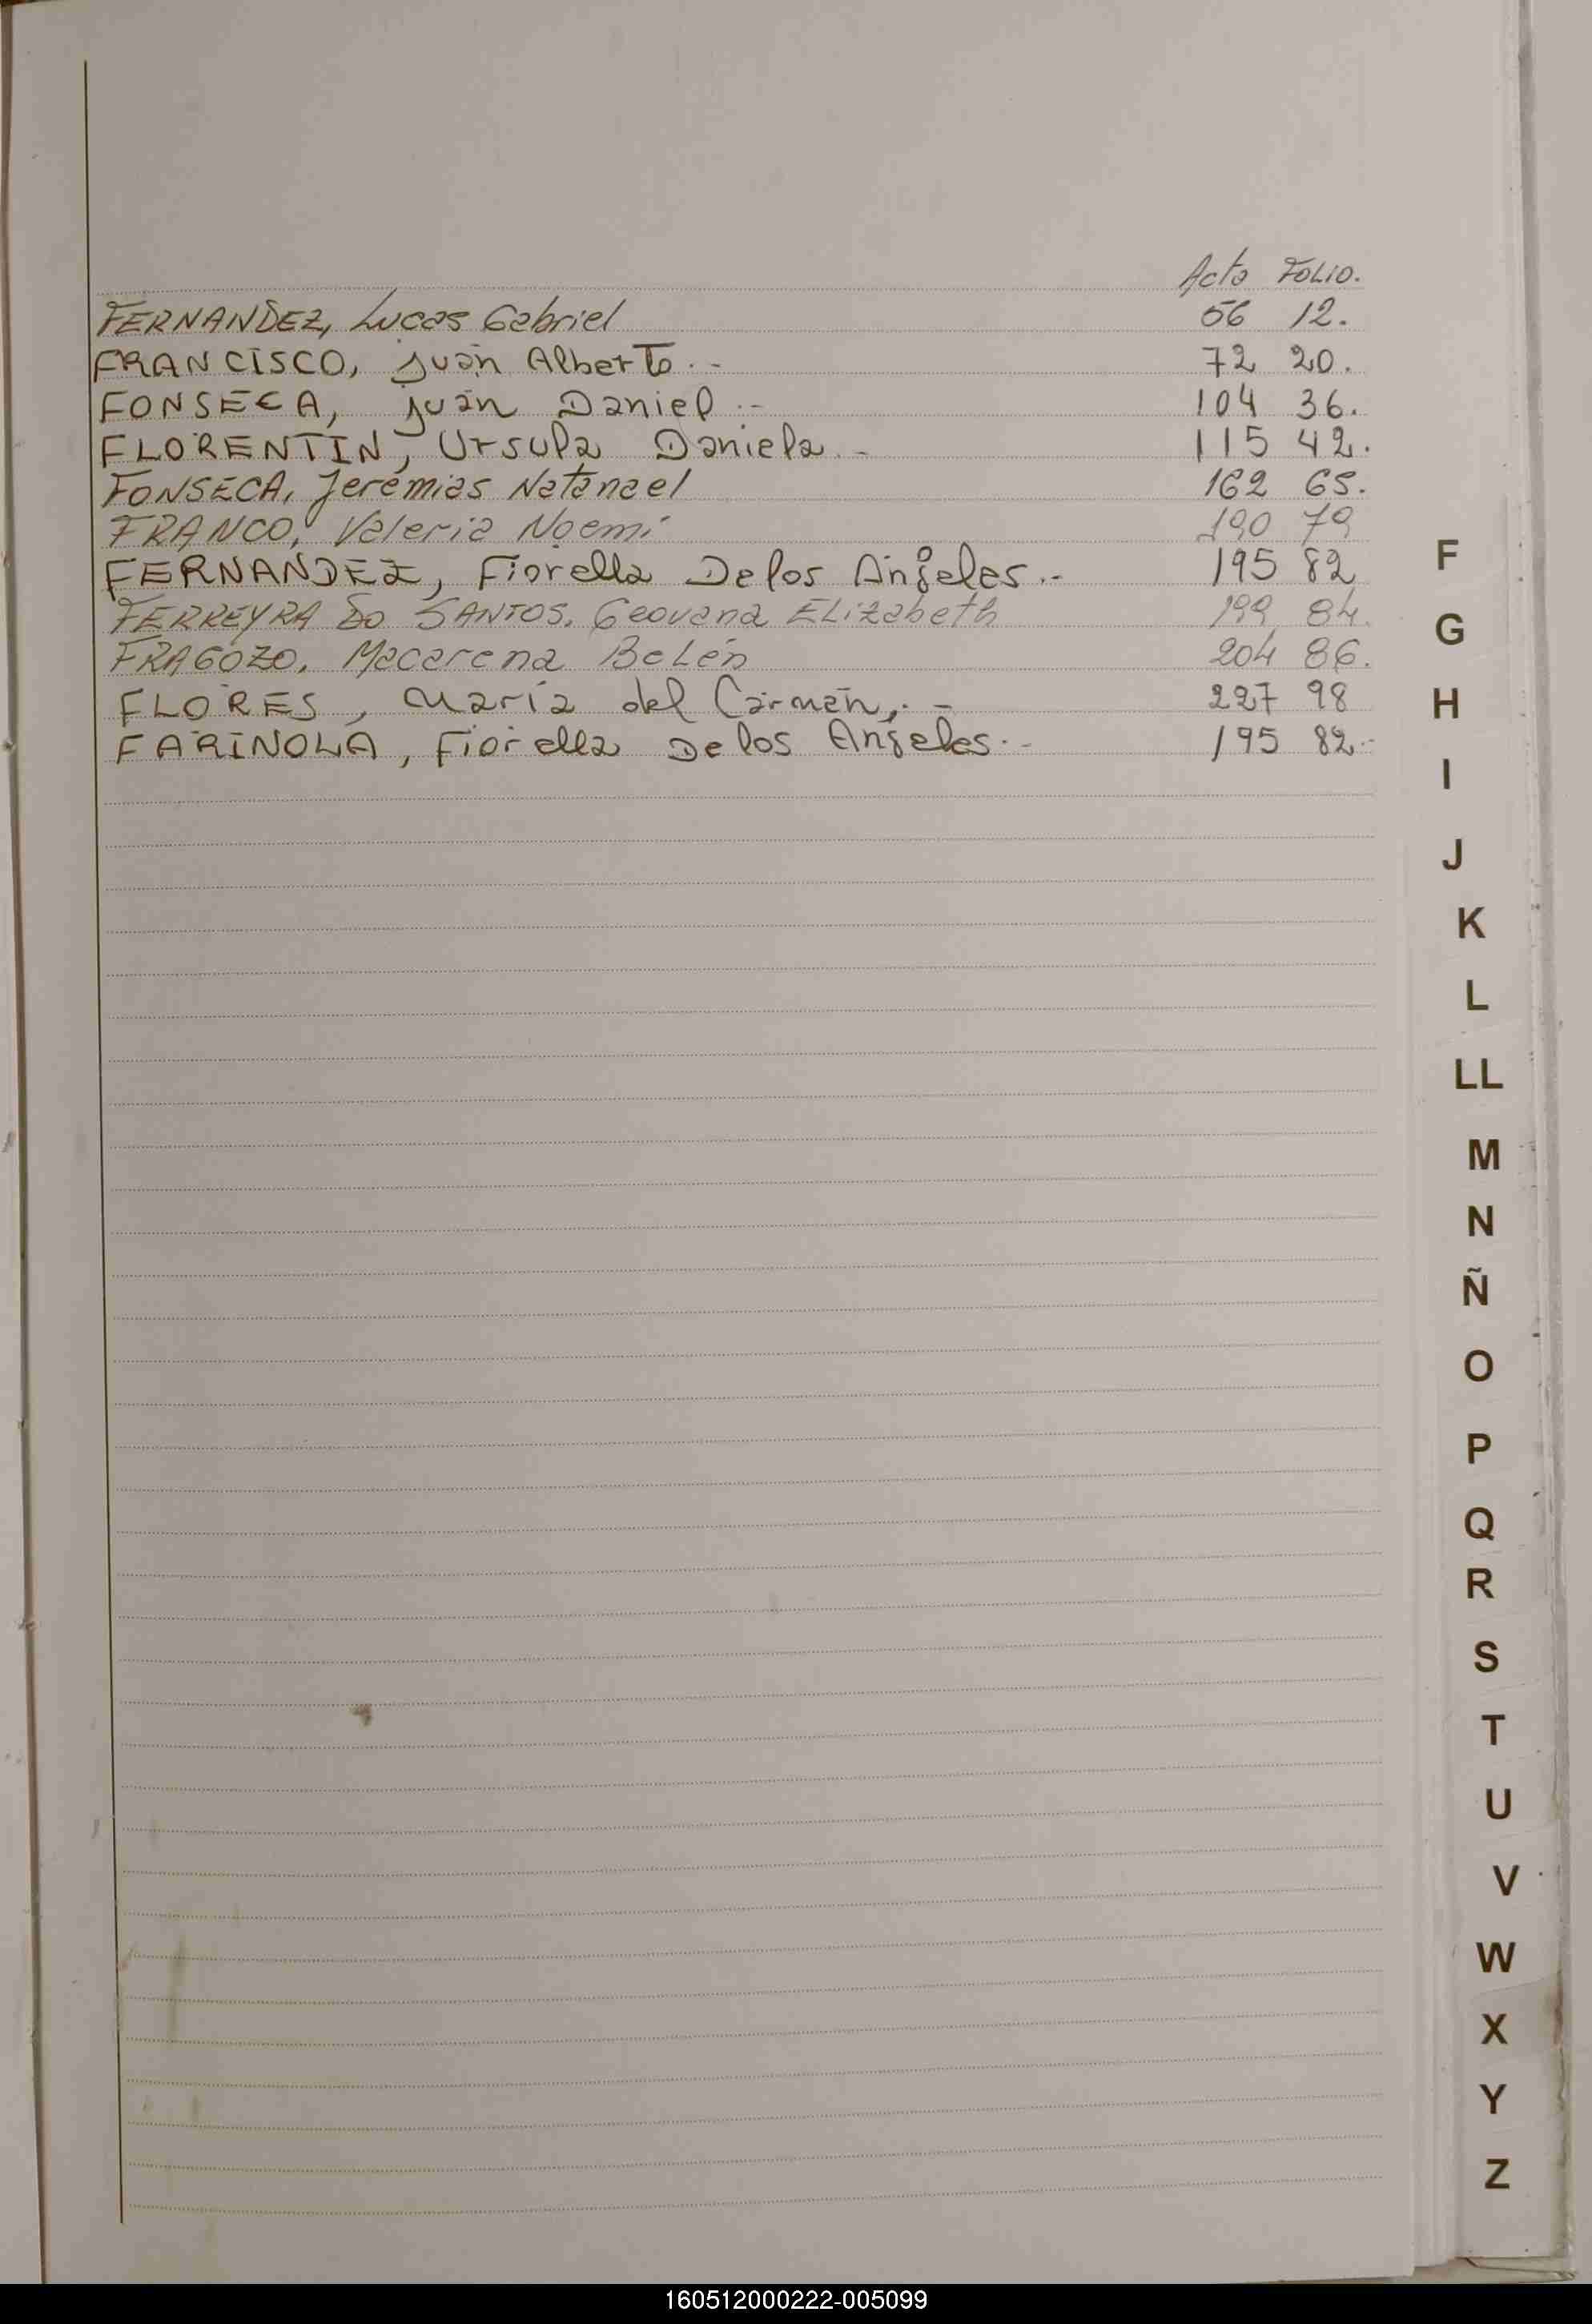 Acta FOLIO.
FERNANDEZ, Lucas Gabriel 56 12.
FRANCISCO, Juan Alberto.- 72 20.
FONSECA, Juan Daniel.- 104 36.
FLORENTIN, Ursula Daniela.- 115 42.
FONSECA, Jeremias Natanael 162 65.
FRANCO, Valeria Noemi 190 79
FERNANDEZ, Fiorella De los Angeles.- 195 82
FERREYRA DO SANTOS, Geovana Elizabeth 199 84.
FRAGOZO, Macarena Belén 204 86.
FLORES, María del Carmen,.- 227 98
FARINOLA, Fiorella De los Angeles.- 195 82.-
F
G
H
I
J
K
L
LL
M
N
Ñ
O
P
Q
R
S
T
U
V
W
X
Y
Z
160512000222-005099